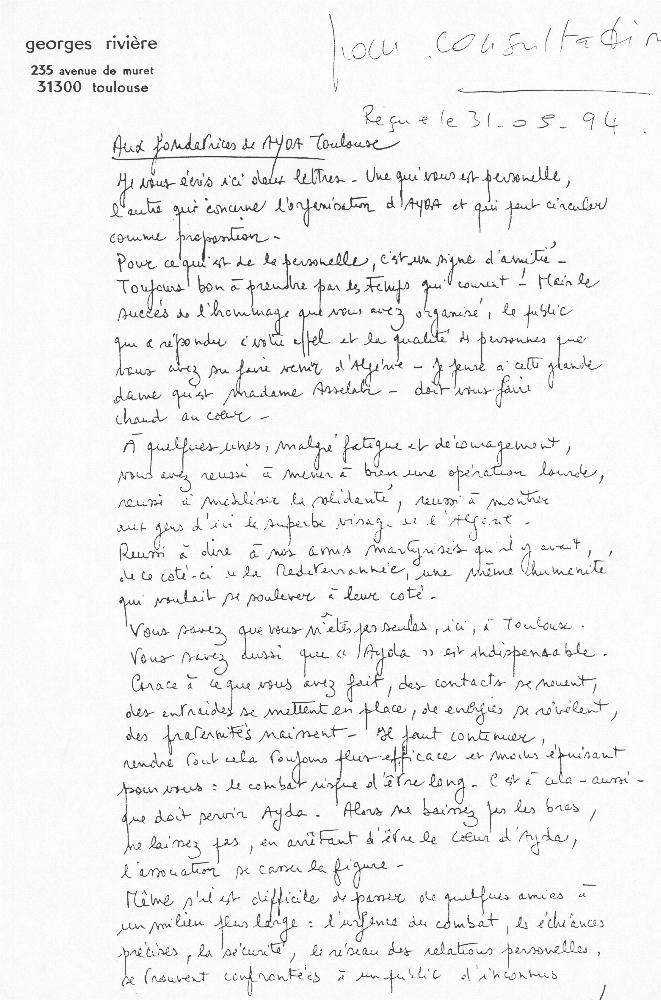 georges rivière
235 avenue de muret
31300 toulouse
Pour consultation
Reçue le 31-05-94.
Aux fondatrices de AYDA Toulouse
Je vous écris ici deux lettres - Une qui vous est personelle,
l'autre qui concerne l'organisation d'AYDA et qui peut circuler
comme proposition -
Pour ce qui est de la personelle, c'est un signe d'amitié -
Toujours bon à prendre par les temps qui courent ! Mais le
succès de l'hommage que vous avez organisé, le public
qui a répondu à votre appel et la qualité des personnes que
vous avez su faire venir d'Algérie - je pense à cette grande
dame qu'est madame Asselah - doit vous faire
chaud au cœur -
À quelques unes, malgré fatigue et découragement,
vous avez reussi à mener à bien une opération lourde,
reussi à mobiliser la solidarité, reussi à montrer
aux gens d'ici le superbe visage de l'Algérie.
Reussi à dire à nos amis martyrisés qu'il y avait,
de ce coté-ci de la Mediterrannée, une même humanité
qui voulait se soulever à leur coté.
Vous savez que vous n'êtes pas seules, ici, à Toulouse.
Vous savez aussi que « Ayda » est indispensable.
Grace à ce que vous avez fait, des contacts se nouent,
des entraides se mettent en place, de energies se révèlent,
des fraternités naissent - Il faut continuer,
rendre tout cela toujours plus efficace et moins épuisant
pour vous : le combat risque d'être long. C'est à cela - aussi -
que doit servir Ayda. Alors ne baissez pas les bras,
ne laissez pas, en arrêtant d'être le cœur d'Ayda,
l'association se casser la figure -
Même s'il est difficile de passer de quelques amies à
un milieu plus large : l'urgence du combat, les échéances
précises, la sécurité, le réseau des relations personelles,
se trouvent confrontées à un public d'inconnus